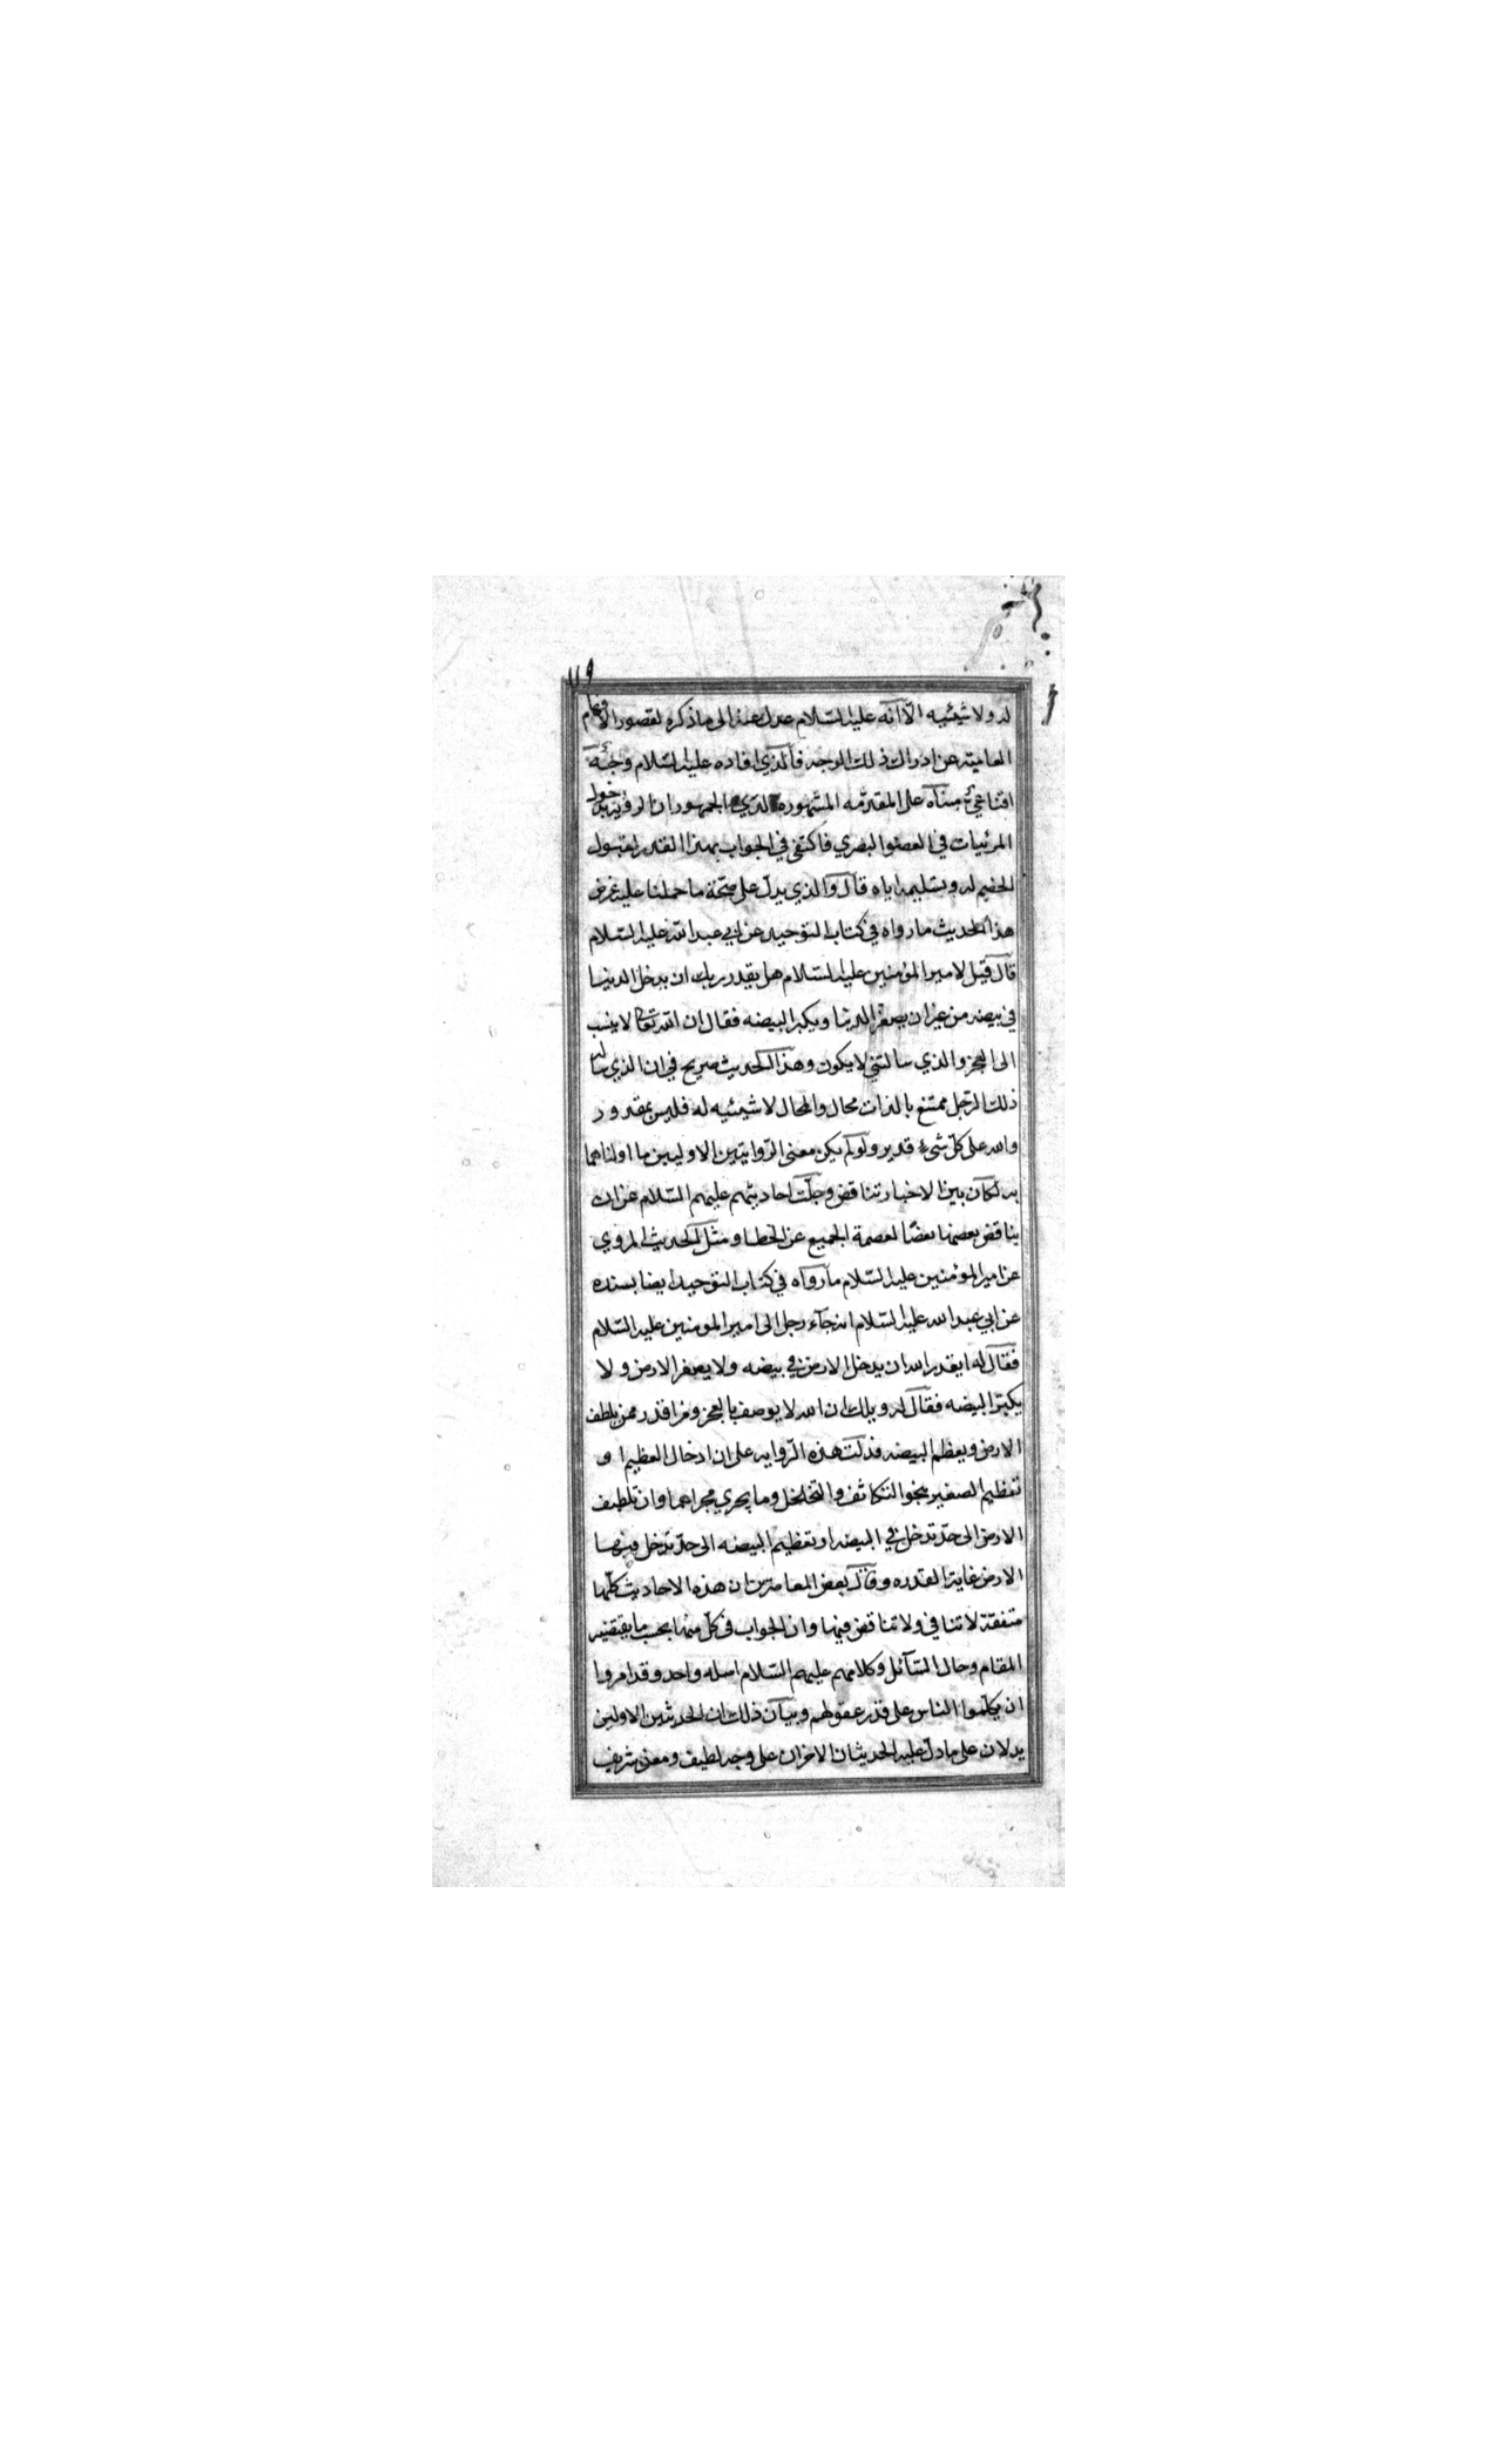 له ولا شيئيه الا انه عليه السلام عدل عنه الى ما ذكره لقصور الافهام
العاميه عن ادراك ذلك الوجه فالذي افاده عليه السلام وجه
اقناعي مبناه على المقدمه المشهوره لدى الجمهور ان الرؤيه بدخول
المرئيات في العضو البصري فاكتفى في الجواب بهذا القدر لقبول
الخصم له وتسليمه اياه قال والذي يدل على صحة ما حملنا عليه غرض
هذا الحديث ما رواه في كتاب التوحيد عن ابي عبد الله عليه السلام
قال قيل لامير المؤمنين عليه السلام هل يقدر ربك ان يدخل الدنيا
في بيضه من غير ان يصغر الدنيا ويكبر البيضه فقال ان الله تعالى لا ينسب
الى العجز والذي سالتني لا يكون وهذا الحديث صريح في ان الذي ساله
ذلك الرجل ممتنع بالذات محال والمحال لا شيئيه له فليس بمقدور
والله على كل شيء قدير ولو لم يكن معنى الروايتين الاوليين ما اولناهما
به لكان بين الاخبار تناقض وجلت احاديثهم عليهم السلام عن ان
يناقض بعضها بعضا لعصمة الجميع عن الخطا ومثل الحديث المروي
عن امير المؤمنين عليه السلام ما رواه في كتاب التوحيد ايضا بسنده
عن ابي عبد الله عليه السلام انه جآء رجل الى امير المومنين عليه السلام
فقال له ايقدر الله ان يدخل الارض في بيضه ولا يصغر الارض ولا
يكبر البيضه فقال له ويلك ان الله لا يوصف بالعجز ومن اقدر ممن يلطف
الارض ويعظم البيضه فدلت هذه الروايه على ان ادخال العظيم او
تعظيم الصغير بنحو التكاثف والتخلخل وما يجري مجراهما وان تلطيف
الارض الى حد تدخل في البيضه او تعظيم البيضه الى حد تدخل فيها
الارض غاية القدره وقال بعض المعاصرين ان هذه الاحاديث كلها
متفقة لا تنافي ولا تناقض فيها وان الجواب في كل منها بحسب ما يقتضيه
المقام وحال السآئل وكلامهم عليهم السلام اصله واحد وقد امروا
ان يكلموا الناس على قدر عقولهم وبيان ذلك ان الحديثين الاولين
يدلان على ما دل عليه الحديثان الاخران على وجه لطيف ومعنى شريف